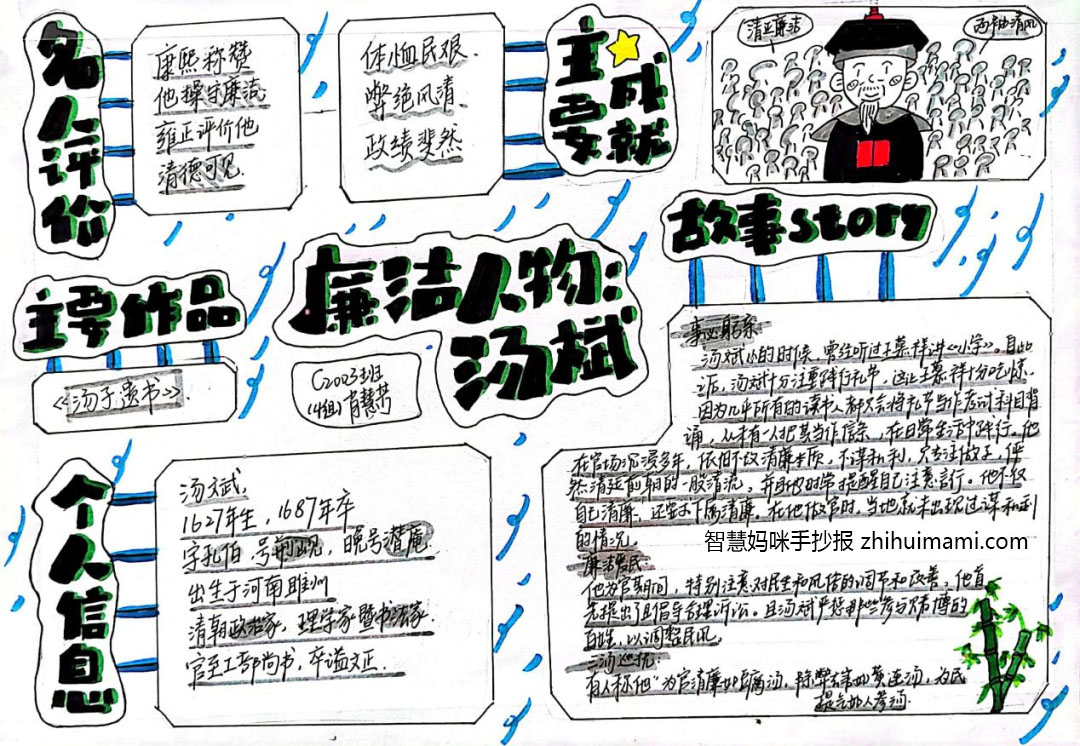 名人评价
康熙称赞
他操守廉洁
雍正评价他
清德可见.
体恤民艰.
弊绝风清
政绩斐然.
主要成就
清正廉洁
两袖清风
故事story
主要作品
《汤子遗书》.
廉洁人物:
汤斌
C2003班
(4组)肖慧芳
个人信息
汤文斌.
1627年生，1687年卒
字孔伯，号荆岘，晚号潜庵.
出生于河南睢州
清朝政治家，理学家暨书法家.
官至工部尚书，卒谥文正.
事必躬亲
汤斌小的时候，曾经听过王某样讲《小学》。自此
诉，汤斌十分注重践行礼节，这让王某祥十分吃惊.
因为几乎所有的读书人都只会将礼节当作考试科目背
诵，从未有一人把其当作信条，在日常生活中践行。他
在官场沉浸多年，依旧不改清廉本质，不谋私利，只专注做好，俨
然清廷前期的一股清流，并且时时常提醒自己注意言行。他不仅
自己清廉，还要求下属清廉。在他做官时，当地就未出现过谋私利
的情况。
智慧妈咪手抄报 zhihuimami.com
廉洁爱民
他为官期间，特别注意对民生和风俗的调节和改善，他首
先提出了且倡导合理诉讼。且汤斌严惩那些参与赌博的
百姓，以调整民风。
三汤巡抚
有人称他“为官清廉如豆腐汤，除弊大事如黄连汤，为民
提气如人参汤.